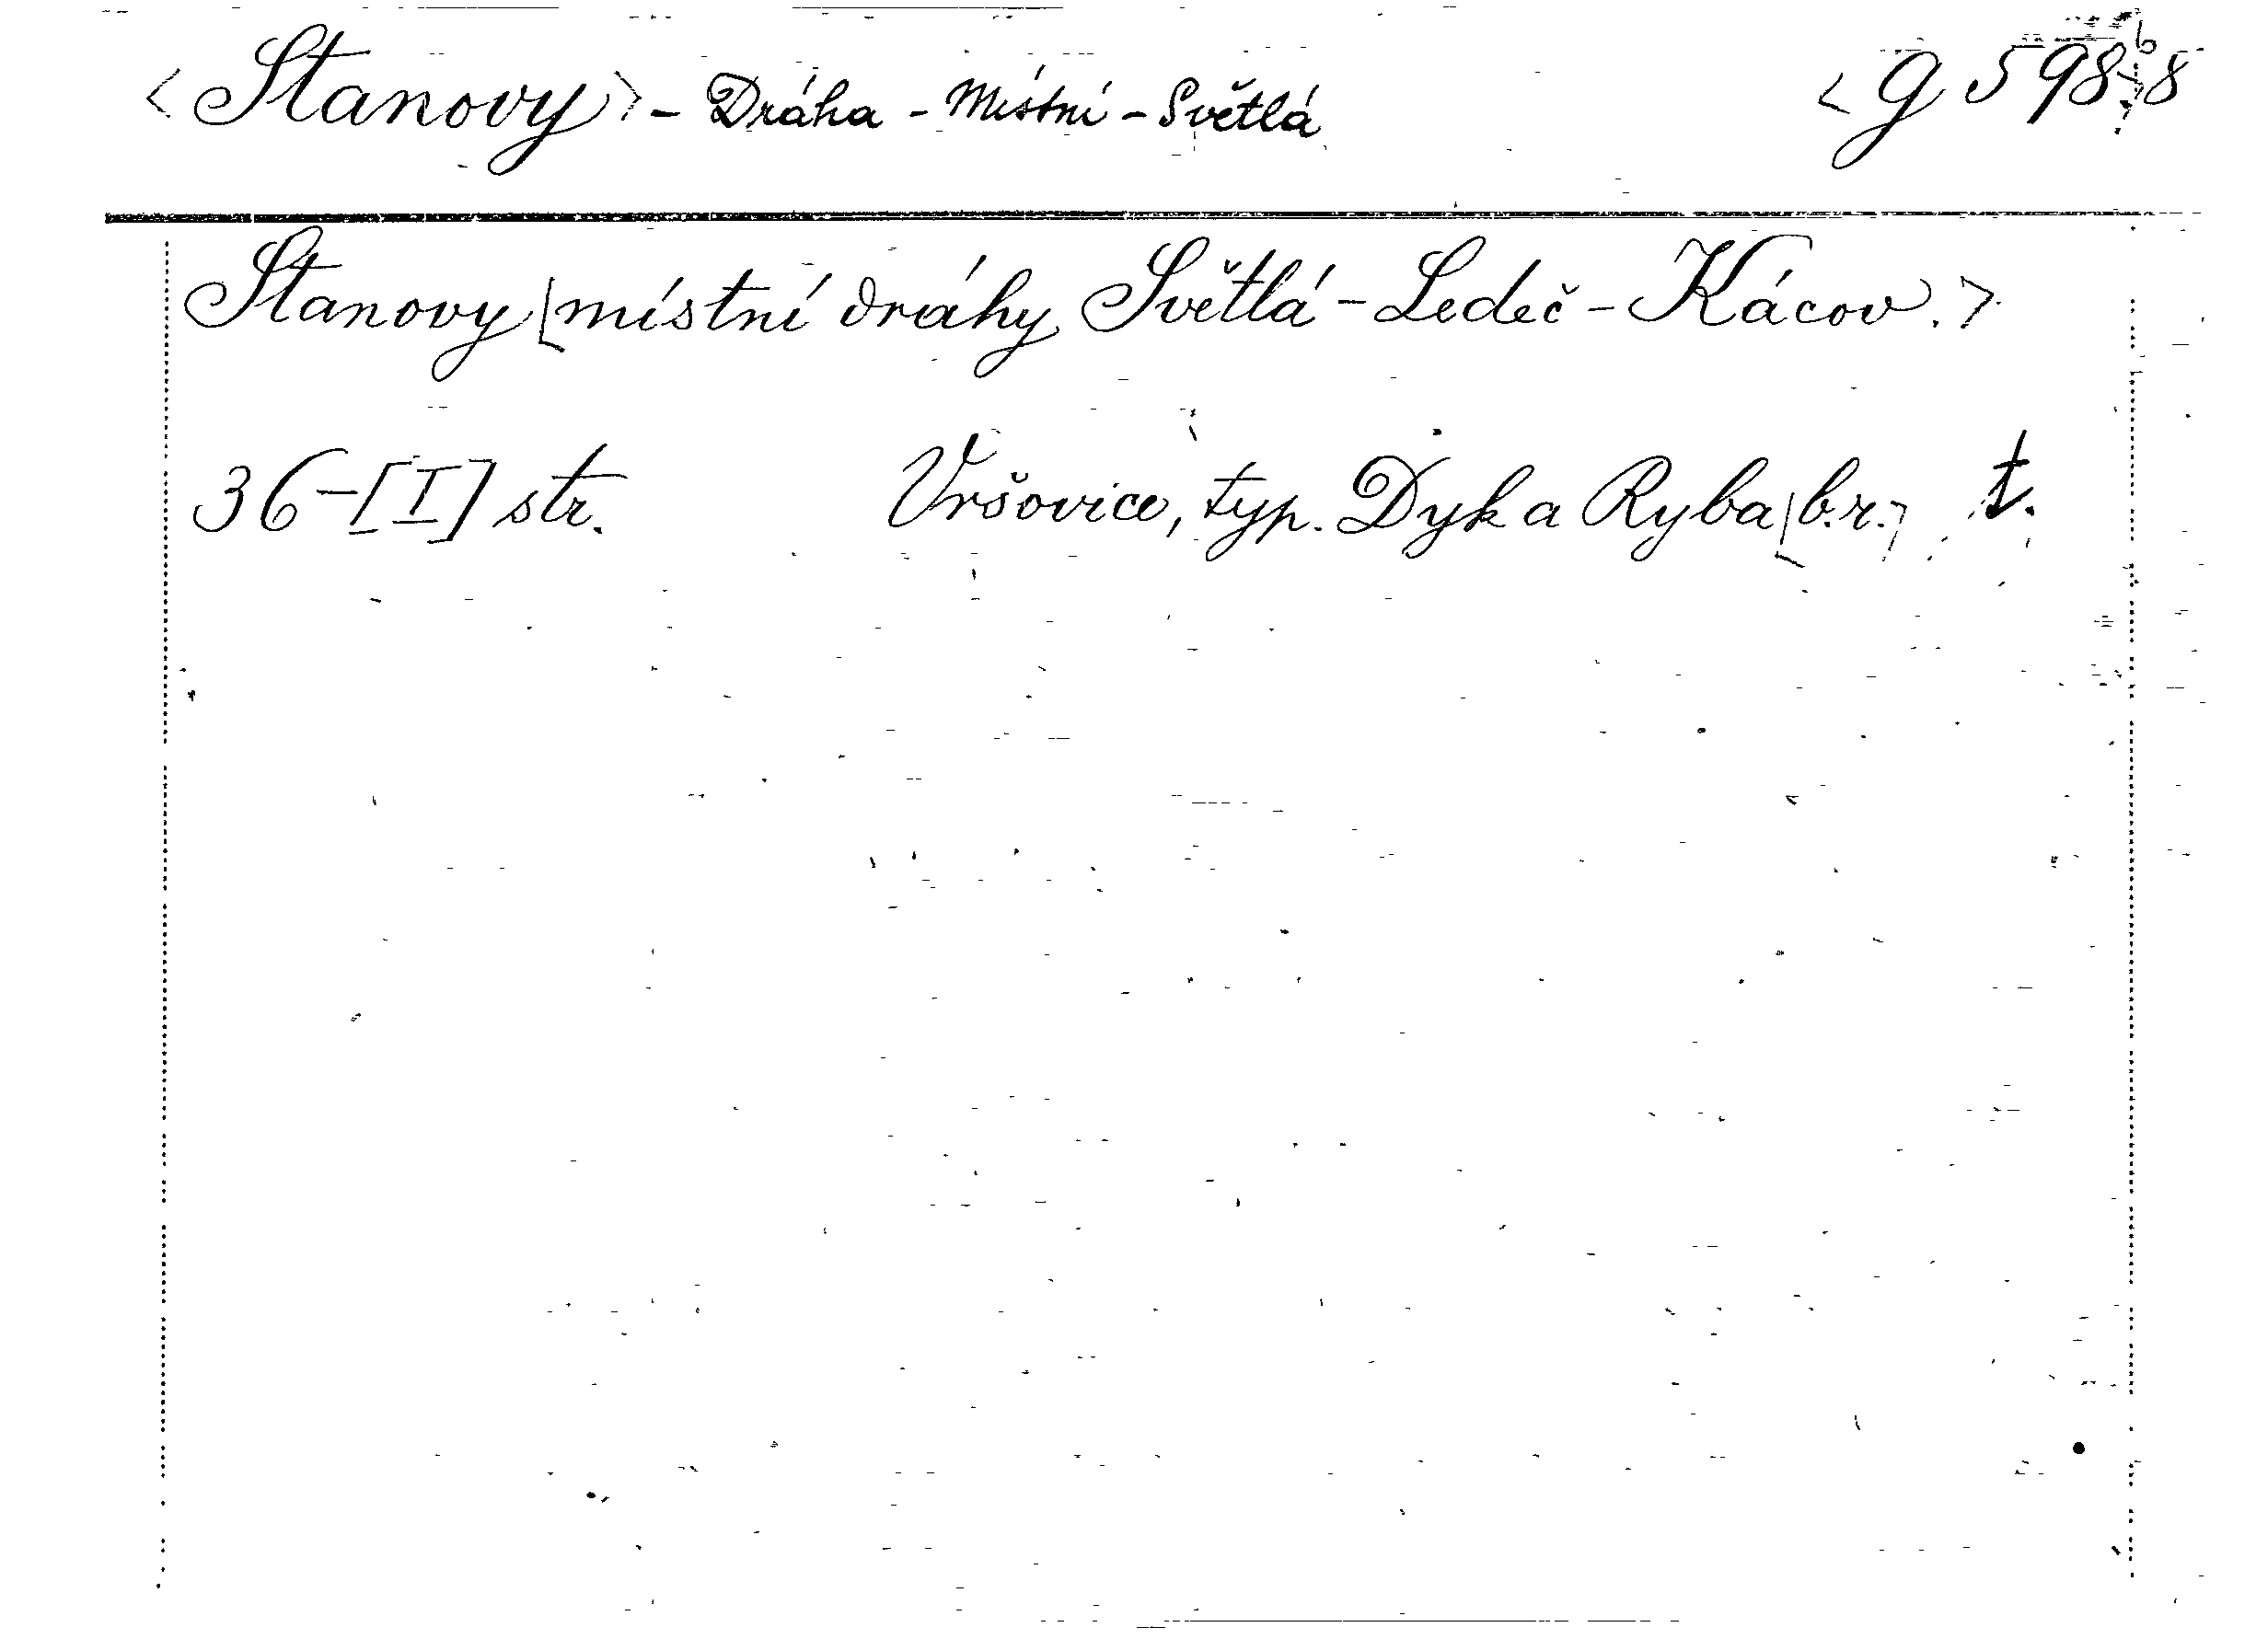 <Stanovy> - Dráha - Místní - Světlá <g 598
Stanovy [místní dráhy Světlá - Ledeč - Kácov.>
36-[I] str. Vršovice, typ. Dyk a Ryba [b.r.> t.